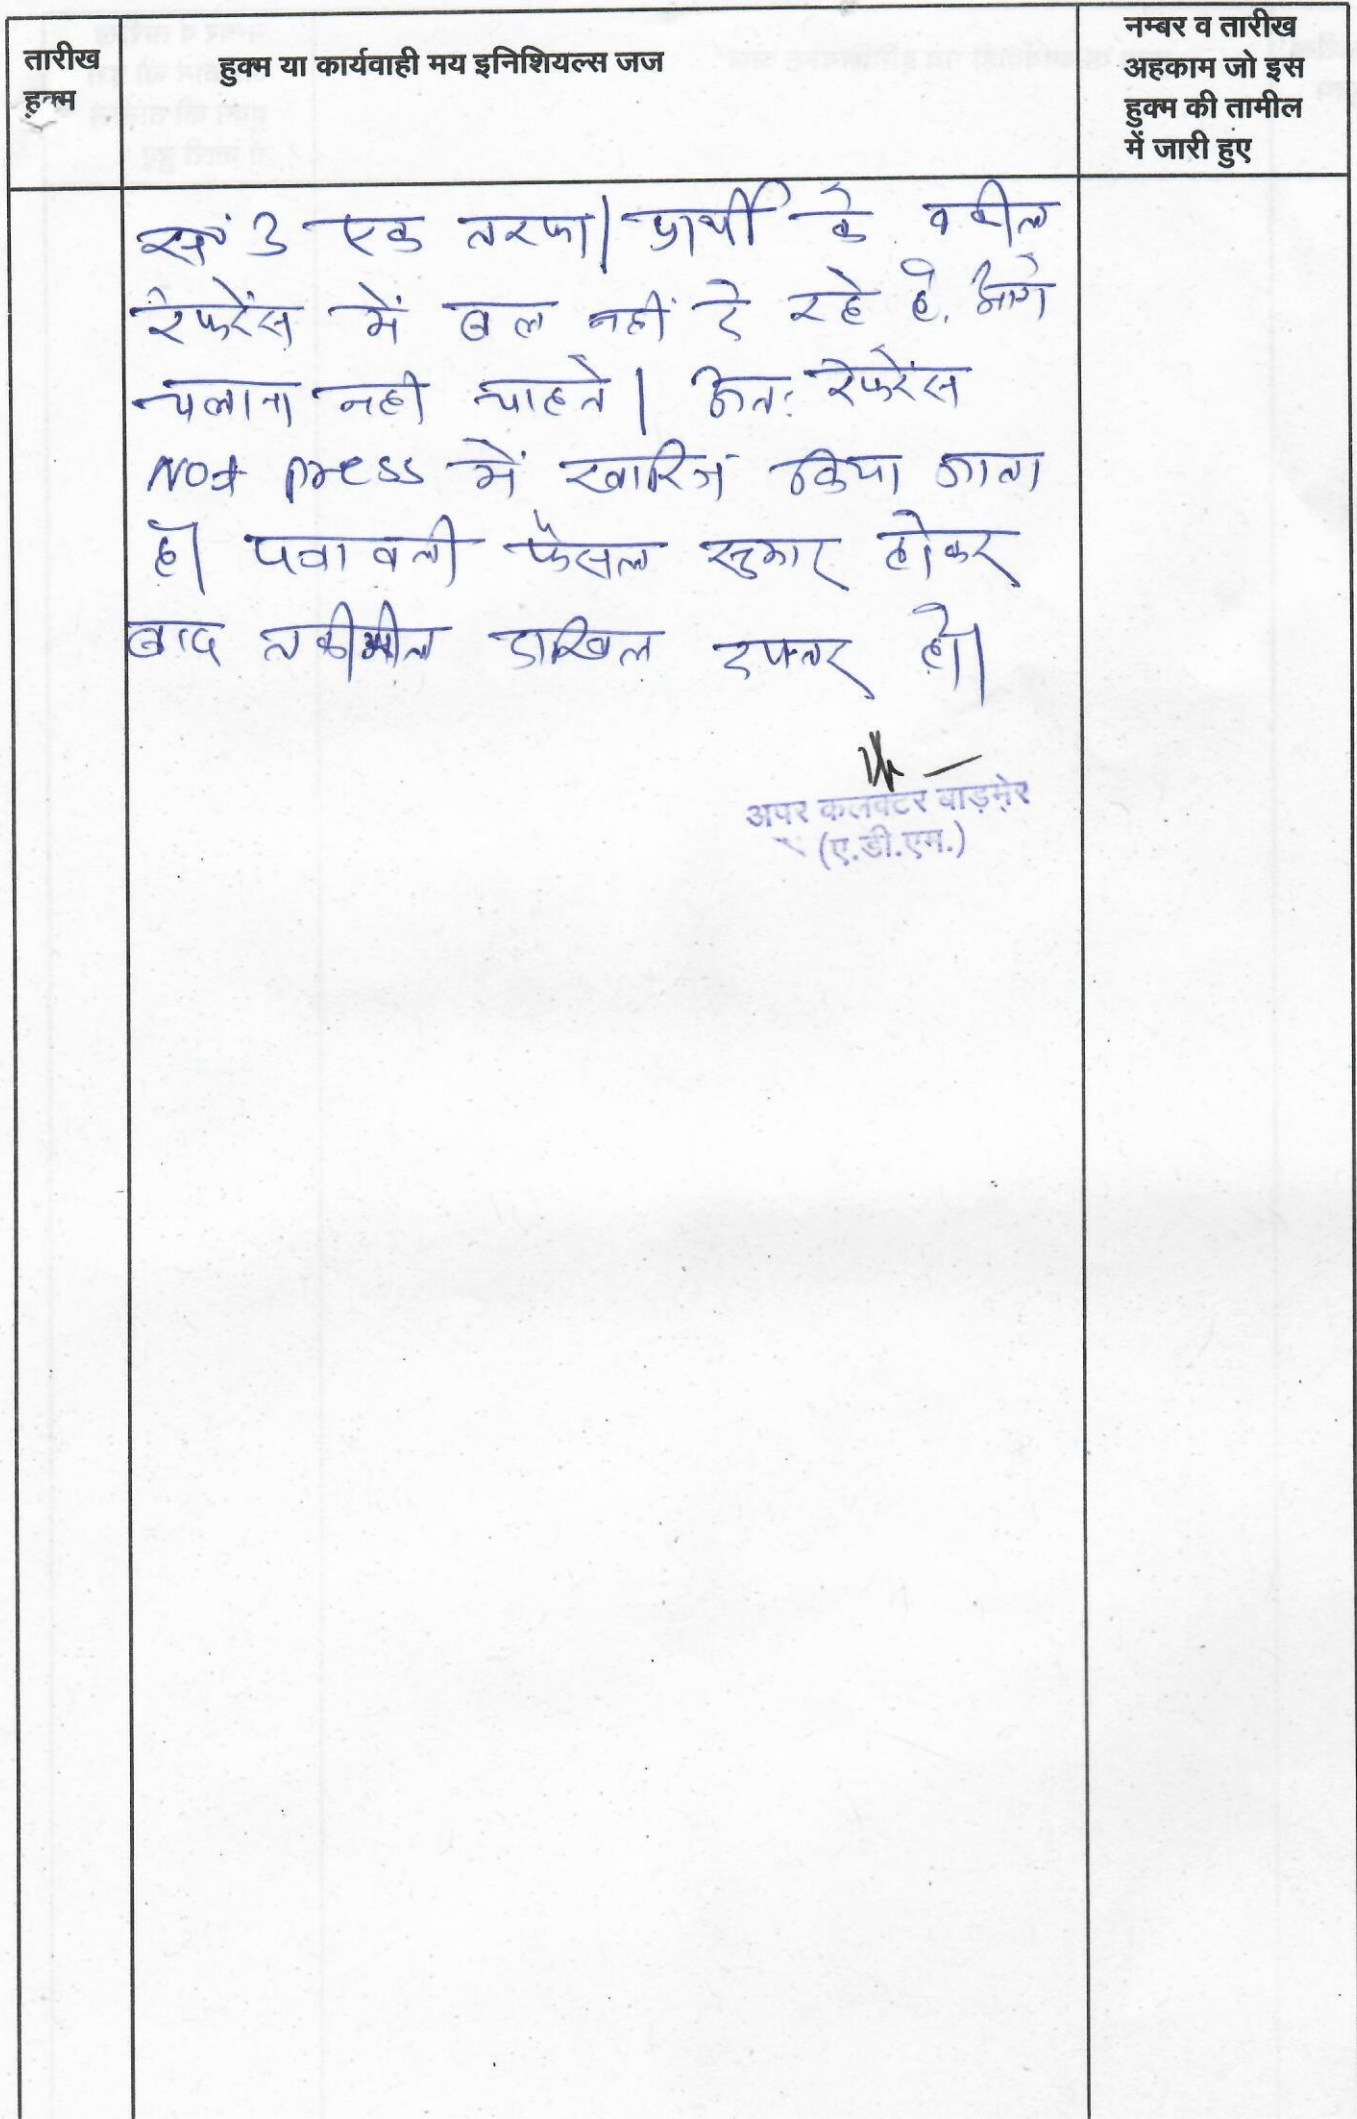 तारीख
हुक्म
हुक्म या कार्यवाही मय इनिशियल्स जज
नम्बर व तारीख
अहकाम जो इस
हुक्म की तामील
में जारी हुए
सं 3 एक तरफा। प्रार्थी के वकील
रेफरेंस में बल नहीं दे रहे है, आगे
चलाना नही चाहते। अतः रेफरेंस
Not press में खारिज किया जाता
है। पत्रावली फैसल सुमार होकर
बाद तकमील दाखिल दफ्तर हो।
अपर कलक्टर बाड़मेर
(ए.डी.एम.)